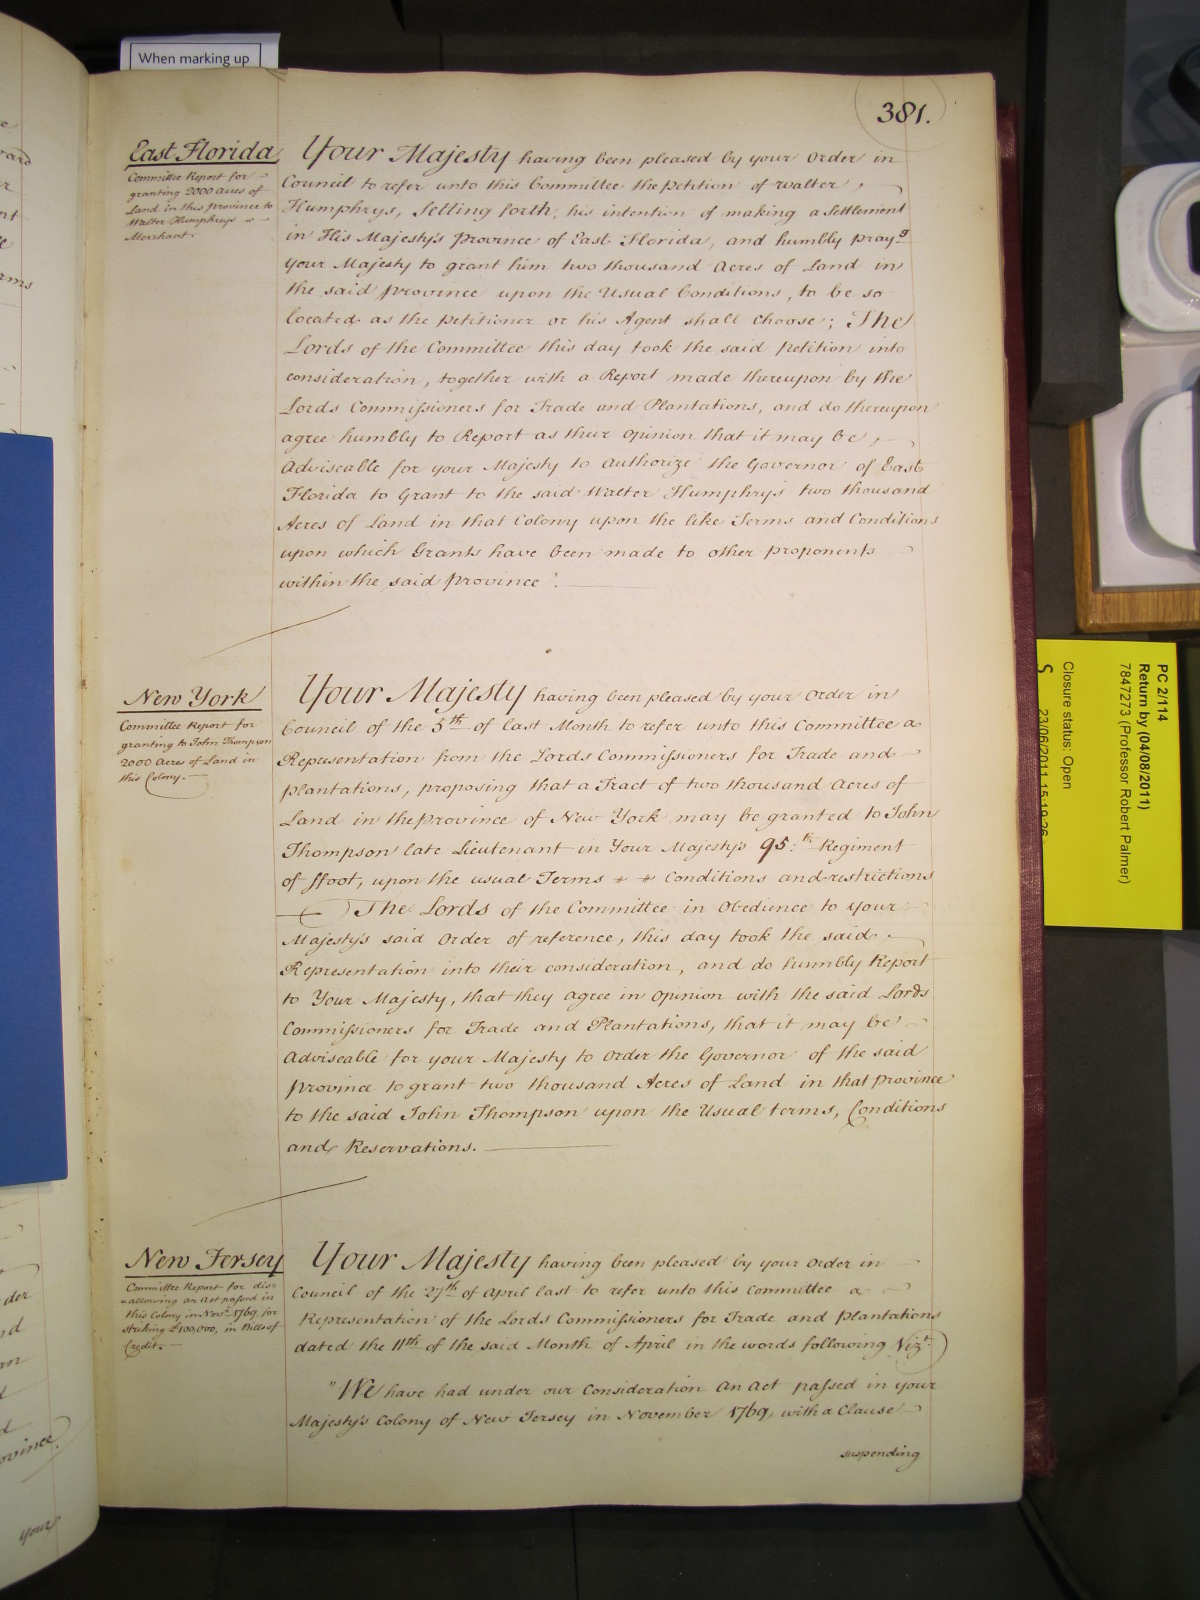 When marking up
381.
East Florida
Committee Report for
granting 2000 Acres of
Land in this Province to
Walter Humphrys
Merchant.
Your Majesty having been pleased by your Order in
Council to refer unto this Committee the Petition of Walter
Humphrys, Setting forth, his intention of making a Settlement
in His Majesty's Province of East Florida, and humbly pray.g
Your Majesty to grant him two thousand Acres of Land in
the said Province upon the Usual Conditions, to be so
located as the Petitioner or his Agent shall Choose; The
Lords of the Committee this day took the said Petition into
consideration, together with a Report made thereupon by the
Lords Commissioners for Trade and Plantations, and do thereupon
agree humbly to Report as their opinion that it may be
Adviseable for your Majesty to authorize the Governor of East
Florida to Grant to the said Walter Humphrys two thousand
Acres of Land in that Colony upon the like Terms and Conditions
upon which Grants have been made to other proponents
within the said Province.
New York
Committee Report for
granting to John Thompson
2000 Acres of Land in
this Colony.
Your Majesty having been pleased by your Order in
Council of the 5th of last Month to refer unto this Committee a
Representation from the Lords Commissioners for Trade and
Plantations, proposing that a Tract of two thousand Acres of
Land in the Province of New York may be granted to John
Thompson late Lieutenant in Your Majesty's 95:th Regiment
of ffoot, upon the usual Terms Conditions and restrictions
The Lords of the Committee in Obedience to your
Majesty's said Order of reference, this day took the said
Representation into their consideration, and do humbly Report
to Your Majesty, that they agree in Opinion with the said Lords
Commissioners for Trade and Plantations, that it may be
Adviseable for your Majesty to Order the Governor of the said
Province to grant two thousand Acres of Land in that Province
to the said John Thompson upon the Usual terms, Conditions
and Reservations.
New Jersey
Committee Report for dis=
=allowing an Act passed in
this Colony in Novr. 1769, for
striking £100,000, in Bills of
Credit.
Your Majesty having been pleased by your Order in
Council of the 27th of April last to refer unto this Committee a
Representation of the Lords Commissioners for Trade and Plantations
dated the 11th of the said Month of April in the words following Vizt.
"We have had under our Consideration an Act passed in your
Majesty's Colony of New Jersey in November 1769, with a Clause
suspending
PC 2/114
Return by (04/08/2011)
7847273 (Professor Robert Palmer)
Closure status: Open
S
23/06/2011 15:19:26
der
nd
ovince.
your
rms